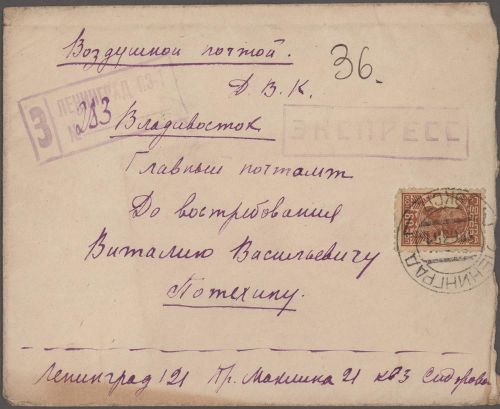 Воздушной почтой.
36.
Д. В. К.
З ЛЕНИНГРАД
№ 283
Владивосток
ЭКСПРЕСС
Главный почтамт
До востребования
Виталию Васильевичу
Потехину.
ЛЕНИНГРАД
Ленинград 121 Пр. Маклина 21 кв 3 Сидорова